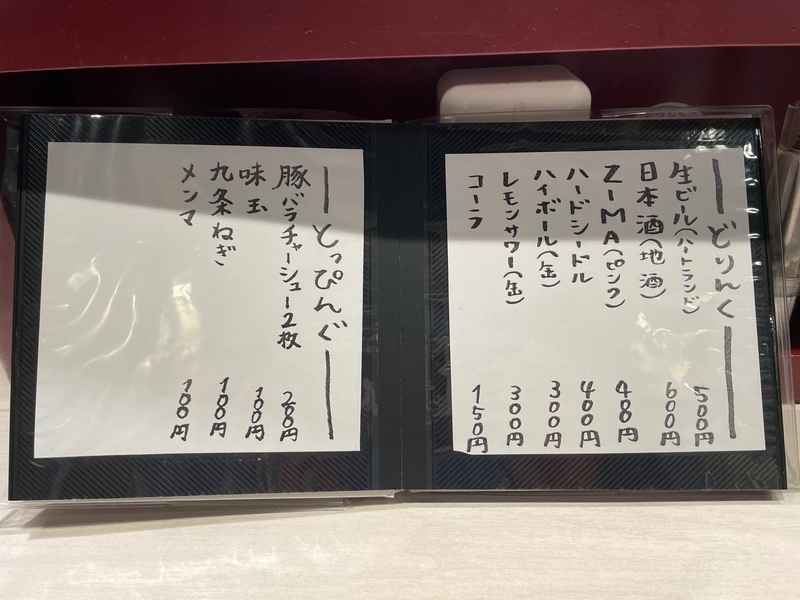 どりんく
生ビール(ハートランド) 500円
日本酒(地酒) 600円
ZIMA(ピンク) 400円
ハードシードル 400円
ハイボール(缶) 300円
レモンサワー(缶) 300円
コーラ 150円
とっぴんぐ
豚バラチャーシュー2枚 200円
味玉 100円
九条ねぎ 100円
メンマ 100円